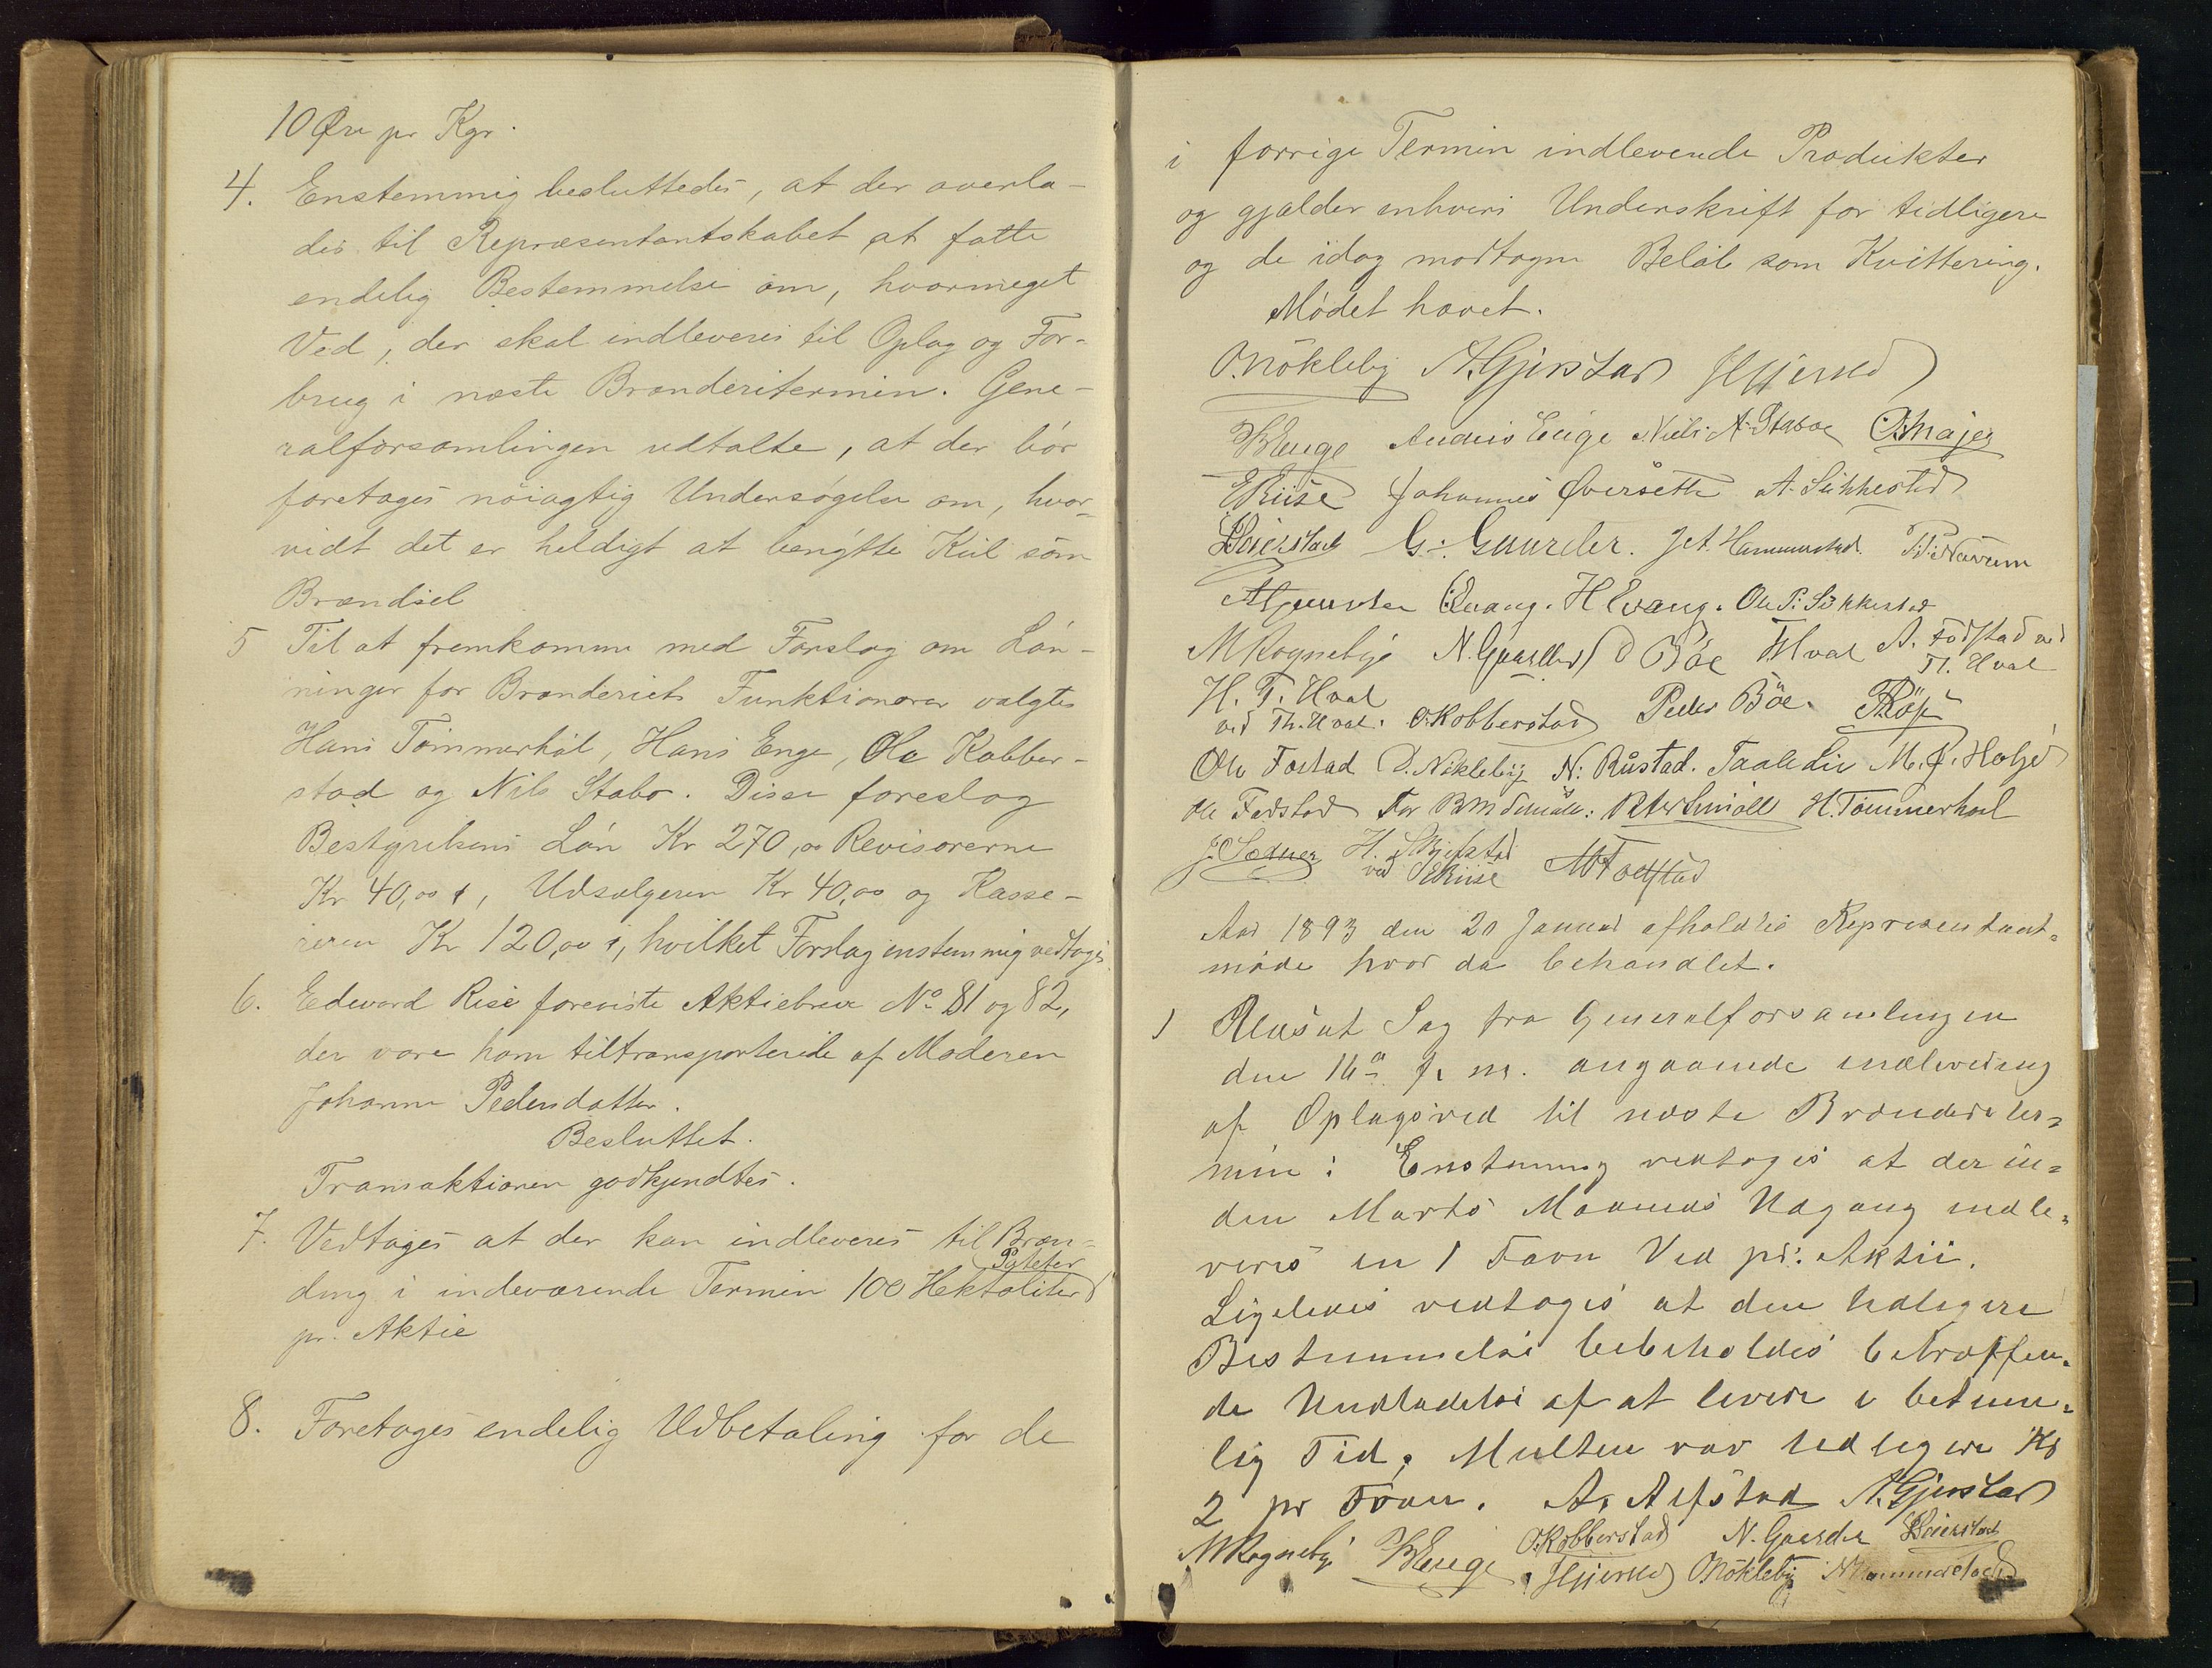 10 Øre pr Kgr.
4. Enstemmig besluttedes, at der overla-
des til Repræsentantskabet at fatte
endelig Bestemmelse om, hvormeget
Ved, der skal indleveres til Oplag og For-
brug i næste Brænderitermin. Gene-
ralforsamlingen udtalte, at der bör
foretages nöiagtig Undersögelse om, hvor-
vidt det er heldigt at benytte Kul som
Brændsel
5 Til at fremkomme med Forslag om Lön-
ninger for Brænderiets Funktionærer valgtes
Hans Tömmerhol, Hans Enge, Ole Kobber-
stad og Nils Stabo. Disse foreslog
Bestyrelsens Lön Kr 270,00 Revisorerne
Kr 40,00, Udsælgeren Kr 40,00 og Kasse-
reren Kr 120,00, hvilket Forslag enstemmig vedtoges
6. Edevard Rise foreviste Aktiebreve No 81 og 82,
der vare ham tiltransporterede af Moderen
Johanne Pedersdatter.
Besluttet.
Transaktionen godkjendtes.
7. Vedtoges at der kan indleveres til Bræn-
ding i indeværende Termin 100 Hektoliter Poteter
pr. Aktie
8. Foretoges endelig Udbetaling for de
i forrige Termin indleverede Produkter
og gjælder enhvers Underskrift for tidligere
og de idag modtagne Belöb som Kvittering.
Mödet hævet.
O. Nökleby A. Gjerstad
HEnge Anders Enge Niels A. Staboe
ERiise Johannes Øversette A. Sukkestad
G. Gaarder. Joh. Hammerstad.
Evang. H Evang. Ole P. Sukkestad
M Rognebye N. Gaarder O Böe THval A. Fodstad ved
Th. Hval
H. T. Hval
ved Th. Hval. O. Kobberstad Peder Böe.
Ole Fostad O. Nökleby N. Rustad. M. J. Holje
Ole Fodstad For Peter Smöll H. Tömmerhol
H. Skjefstad
ved ERiise
Aar 1893 den 20 Januar afholdtes Repræsentant-
möde hvor da behandlet.
1 Udsat Sag fra Generalforsamlingen
den 16de f. m. angaaende indlevering
af Oplagsved til næste Brænderiter-
min: Enstemmig vedtoges at der in-
den Marts Maaneds Udgang indle-
veres en 1 Favn Ved pr: Aktie.
Ligeledes vedtoges at den tidligere
Bestemmelse bibeholdes betræffen-
de Undladelse af at levere i betime-
lig Tid, Multen var tidligere Kr
2 pr Favn. A. Alfstad A. Gjerstad
M Rognebye HEnge O. Kobberstad N. Gaarder
O Nökleby Hammerstad